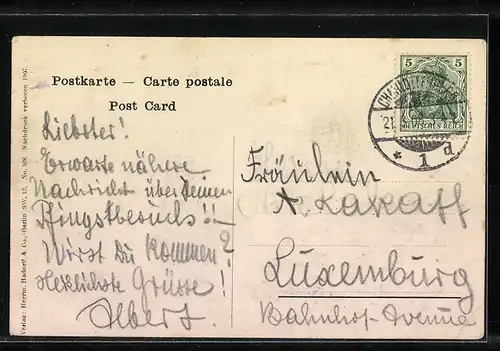 Postkarte — Carte postale
Post Card
Liebster!
Erwarte nähere
Nachricht über Deinen
Pfingstbesuch!!
Wirst Du kommen?
Herzlichste Grüsse!
Albert.
Fräulein
Luxemburg
Bahnhof-Avenue
5 5
DEUTSCHES REICH
21
* 1 d
Verlag: Herm. Hadorff & Co., Berlin SW. 13. Nachdruck verboten